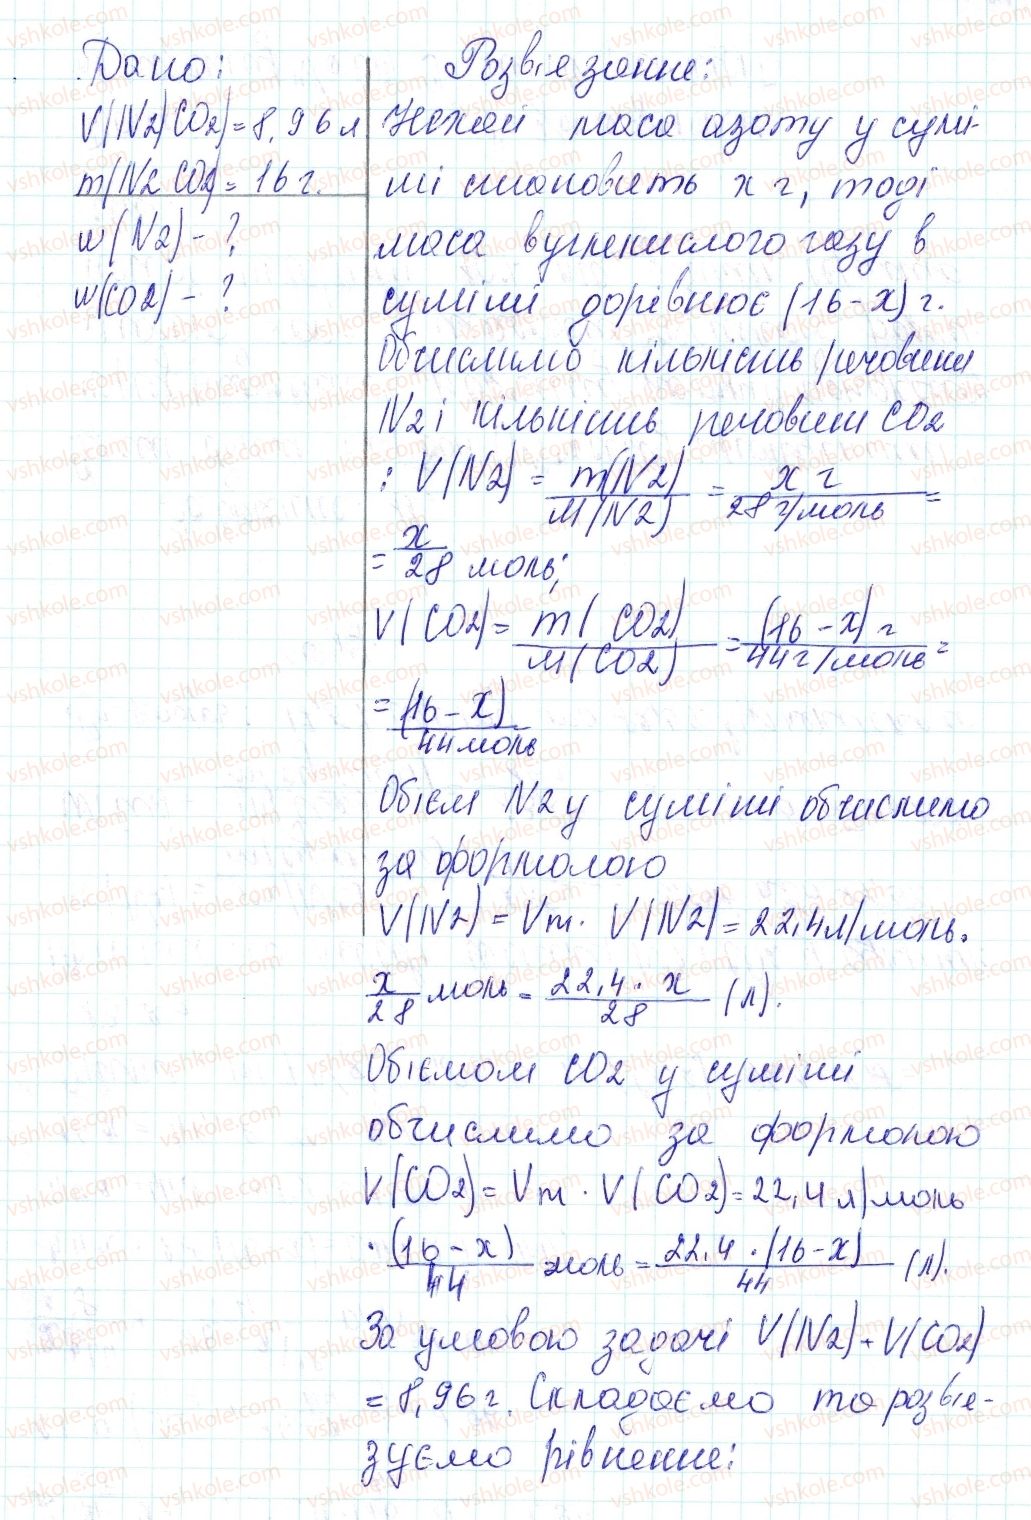 Дано:
V(N2)CO2)=8,96л
m(N2 CO2)= 16г.
w(N2) - ?
w(CO2) - ?
Розвіязання:
Нехай маса азоту у сумі-
мі становить x г, тоді
маса вуглекислого газу в
суміші дорівнює (16-x) г.
Обчислимо кількість речовини
N2 і кількість речовини CO2
: V(N2) = m(N2) / M(N2) = x г / 28 г/моль =
= x / 28 моль;
V(CO2) = m(CO2) / M(CO2) = (16-x) г / 44 г/моль =
= (16-x) / 44 моль
Обієм N2 у суміші обчислимо
за формолою
V(N2) = Vm · V(N2) = 22,4 л/моль.
x / 28 моль = 22,4 · x / 28 (л).
Обіємом CO2 у суміші
обчислимо за формолою
V(CO2) = Vm · V(CO2) = 22,4 л/моль
· (16-x) / 44 моль = 22,4 · (16-x) / 44 (л).
За умовою задачі V(N2) + V(CO2)
= 8,96 г. Складаємо та розвія-
зуємо рівнення:
vshkole.com